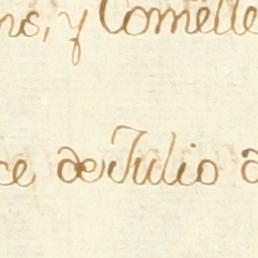 ns, y Comelle
ce de Julio d